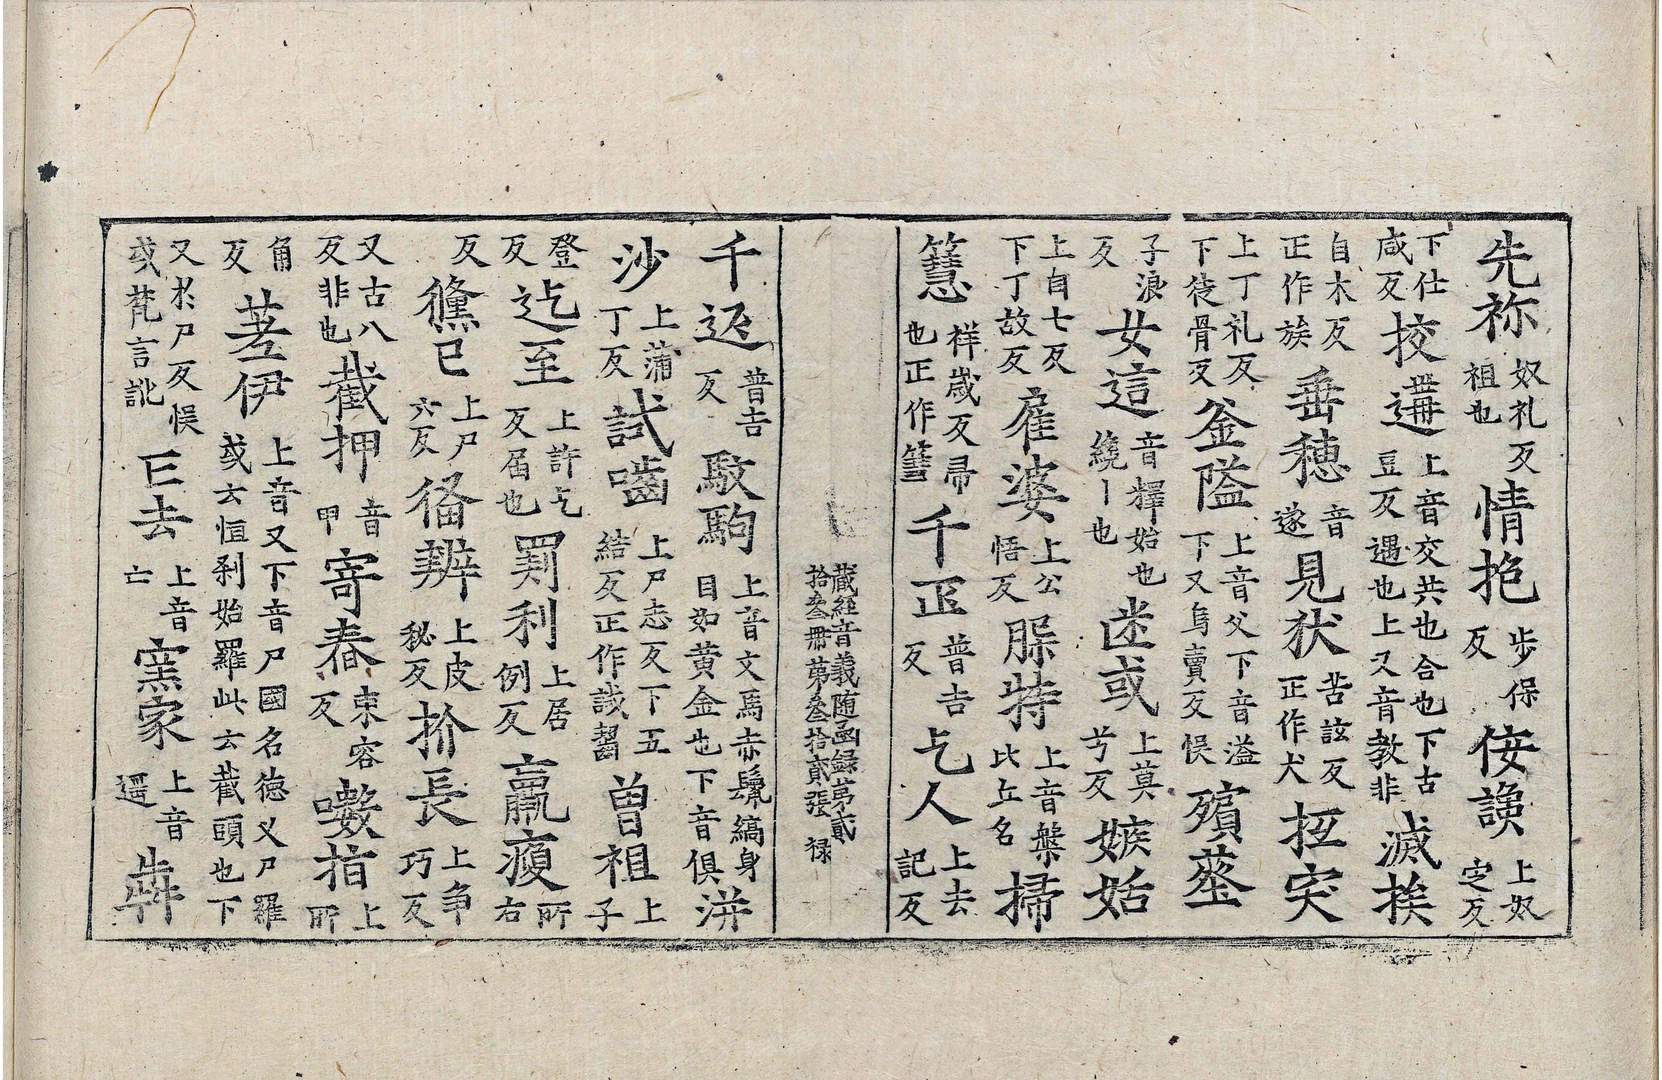 先祢奴礼反祖也情抱步保反侫諛上奴定反
下仕咸反挍遘上音交共也合也下古豆反遇也上又音教非滅族
自木反正作族垂穗音遂見状苦該反正作犬抂突
上丁礼反下徒骨反釜隘上音父下音溢下又烏賣反悮殯塟
子浪反女這音擇始也繞丨也迷或上莫兮反嫉妬
上自七反下丁故反雇婆上公悟反脲特上音槃比丘名掃
篲祥歲反帚也正作篲千叵普告反乞人上去記反
藏經音義随函録第貳拾叁冊第叁拾貳張 禄
千返普告反馼駒上音文馬赤鬣縞身目如黄金也下音俱洴
沙上蒲丁反試嚙上尸志反下五結反正作誠齧曾祖上子
登反迄至上許乞反届也罰利上居例反羸瘦所右
反獯已上尸六反俻辨上皮秘反抓長上爭巧反
又古八反非也截押音甲寄舂束容反嗽指上所
角反䓁伊上音又下音尸國名德乂尸羅或云恒刹始羅此云截頭也下
又於尸反悮或梵言訛亡去上音亡窯家上音遥犇